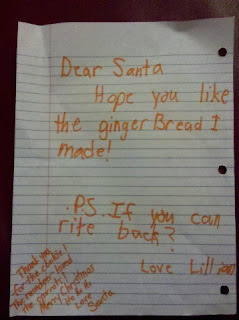 Dear Santa
Hope you like
the ginger Bread I
made!
.P.S. If you can
rite back?
Love Lillian
Thank you
for the cookie!
The reindeer loved
the carrots!
Merry Christmas
Ho Ho Ho
Love
Santa